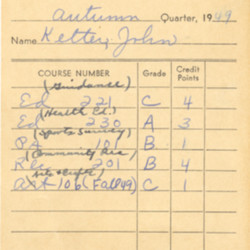 autumn Quarter, 1949
Name Ketter, John
COURSE NUMBER Grade Credit Points
(Guidance)
Ed 221 C 4
(Health Ed.)
Ed 230 A 3
(Sports Survey)
P.A. 101 B 1
(Community Rec
Rec 201 B 4
Arts & Crafts
Art 106 (Fall 49) C 1